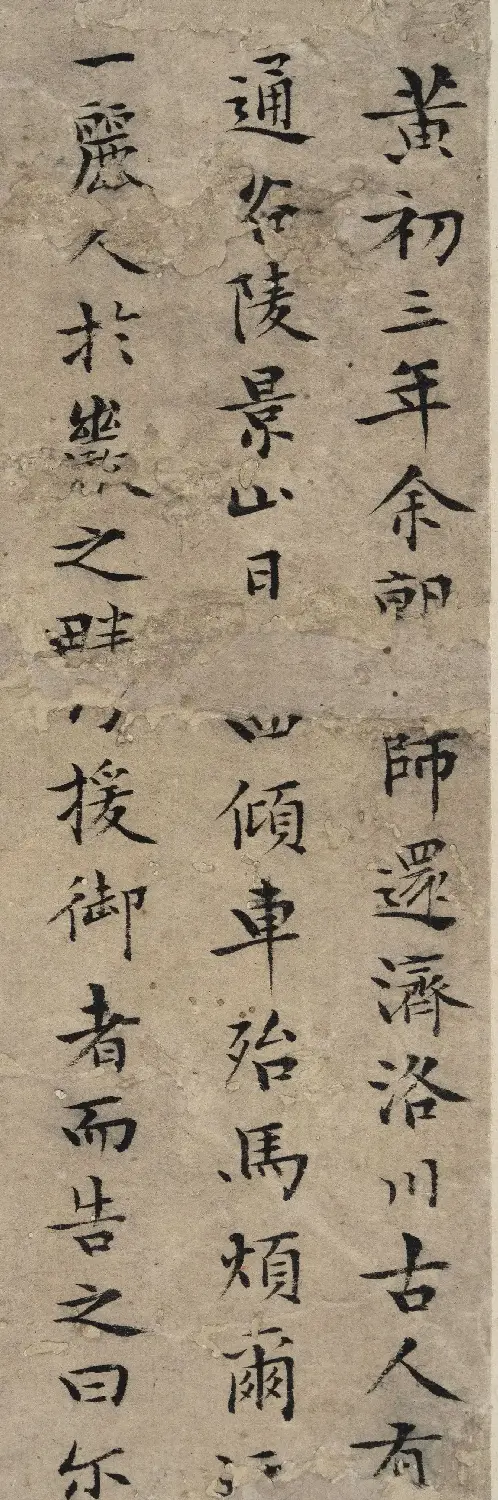 黃初三年余朝師還濟洛川古人有
通谷陵景山日傾車殆馬煩爾
一麗人於巖之畔援御者而告之曰尔